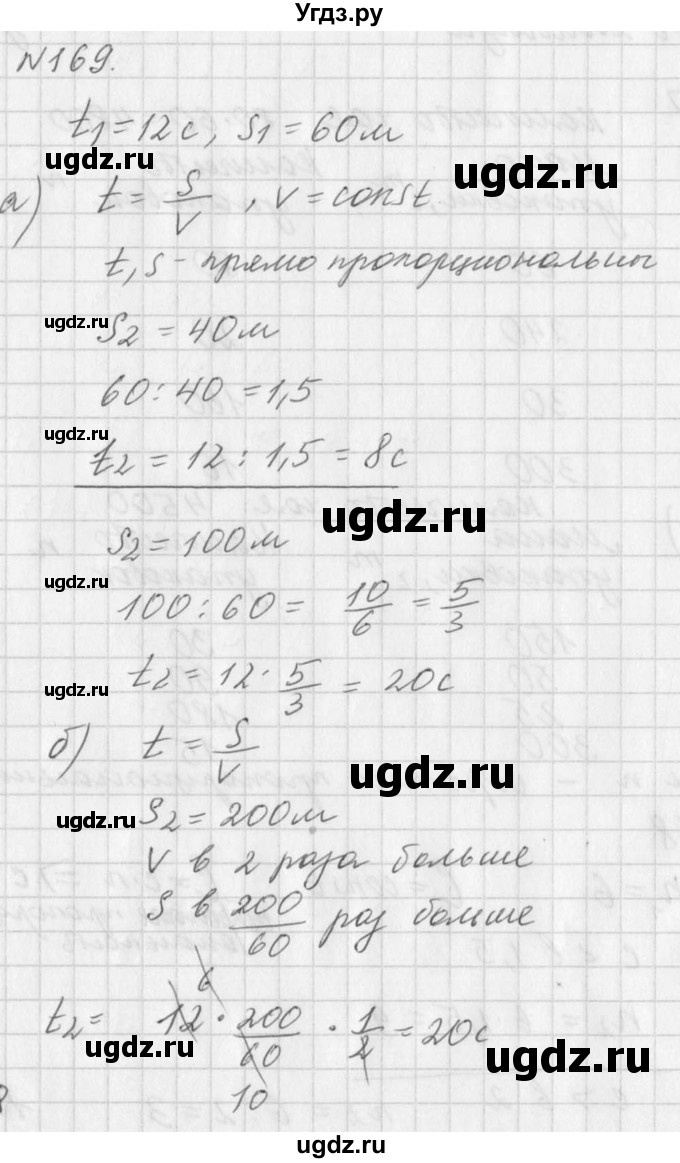 Угдз.ру
N169.
t₁ = 12с, S₁ = 60м
ugdz.ru ugdz.ru
а) t = S/V , V = const
t, S - прямо пропорциональны
ugdz.ru S₂ = 40м
60 : 40 = 1,5
ugdz.ru
t₂ = 12 : 1,5 = 8с
ugdz.ru
S₂ = 100м
ugdz.ru
100 : 60 = 10/6 = 5/3
ugdz.ru t₂ = 12 · 5/3 = 20с
б) t = S/V
ugdz.ru
ugdz.ru S₂ = 200м
V в 2 раза больше
S в 200/60 раз больше
6
t₂ = 12 · 200/60 · 1/2 = 20с
ugdz.ru ugdz.ru
10
ugdz.ru